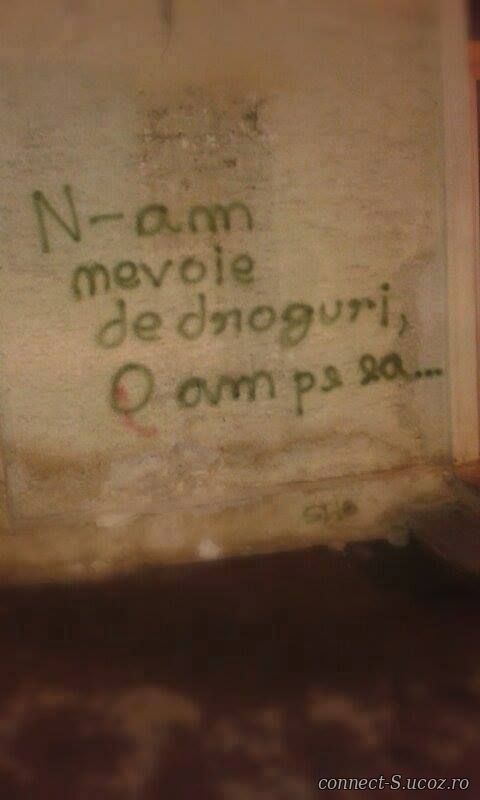 N-am
nevoie
de droguri,
O am pe ea...
connect-S.ucoz.ro